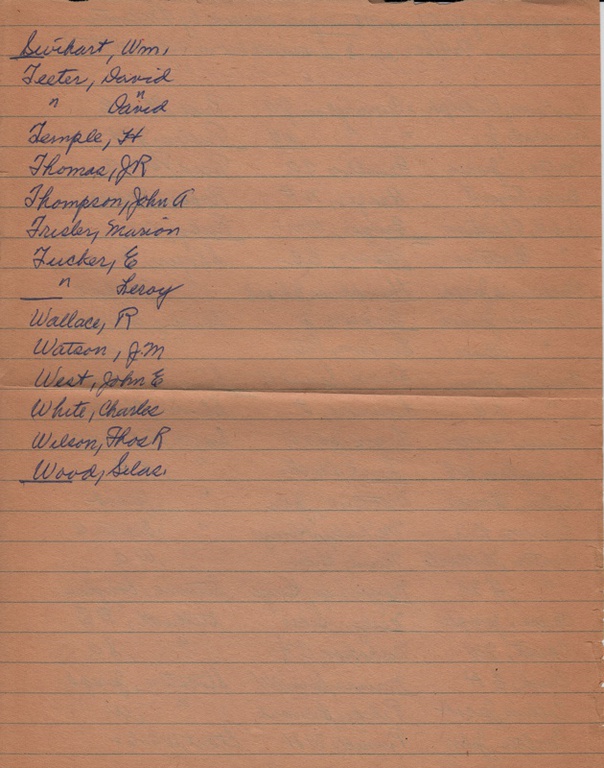 Swihart, Wm.
Teeter, David
" " David
Temple, H
Thomas, J R
Thompson, John A
Trisler, Marion
Tucker, E
" Leroy
Wallace, R
Watson, J.M
West, John E
White, Charles
Wilson, Thos R
Wood, Silas.